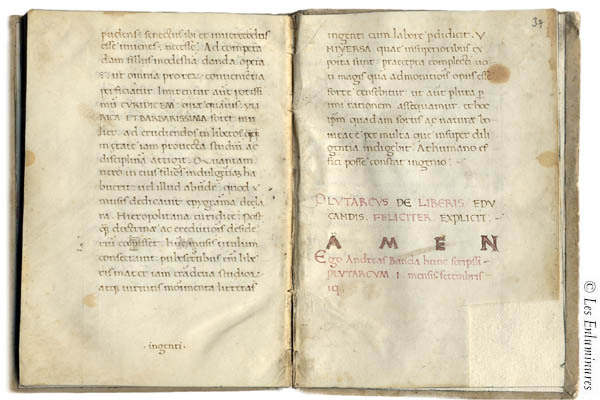 pudens: senectus sibi et mivereodus
esse iuvenes necesse: Ad compera
dam filius modestia danda opera
ut omnia protea convenientia
perficiatur imitentur aut potissi
mū EVRIDICEM quae quāvis YLI
RICA ET BARBARISSIMA foret mu
lier. ad erudiendos tn liberos
in etate iam provecta studiū ac
disciplinā attigit.
nero in eius filios indulgētiaꝫ ha
buerit vel illud abūde: quod
musis dedicavit epygrāma decla
rat. Hieropolitana euridice: Post
doctrinae ac erediōnis deside
riū cōcepisset: huic musis titulum
consecravit. pubescētibus enī libe
ris mater iam eradenda studior
atqꝫ virtutis monimēta litteras
· ingenti ·
37
ingenti cum labore pdidicit. V
NIVERSA quae insuperioribus ex
posita sunt praecepta complecti vo
ti magis quā admonitiōis opus esse
forte censebitur. ut aūt plura pri
mū rationem assequamur. et hoc
ipm quadam sortis ac naturae bo
nitate per multa que insuper dili
gentia indigebit. At humano ef
fici posse constat ingenio: —
PLVTARCVS DE LIBERIS EDV
CANDIS. FELICITER EXPLICIT. —
AMEN
Ego Andreas Banda hunc scripsi:
PLVTARCVM 1 mensis setenbris
© Les Enluminures